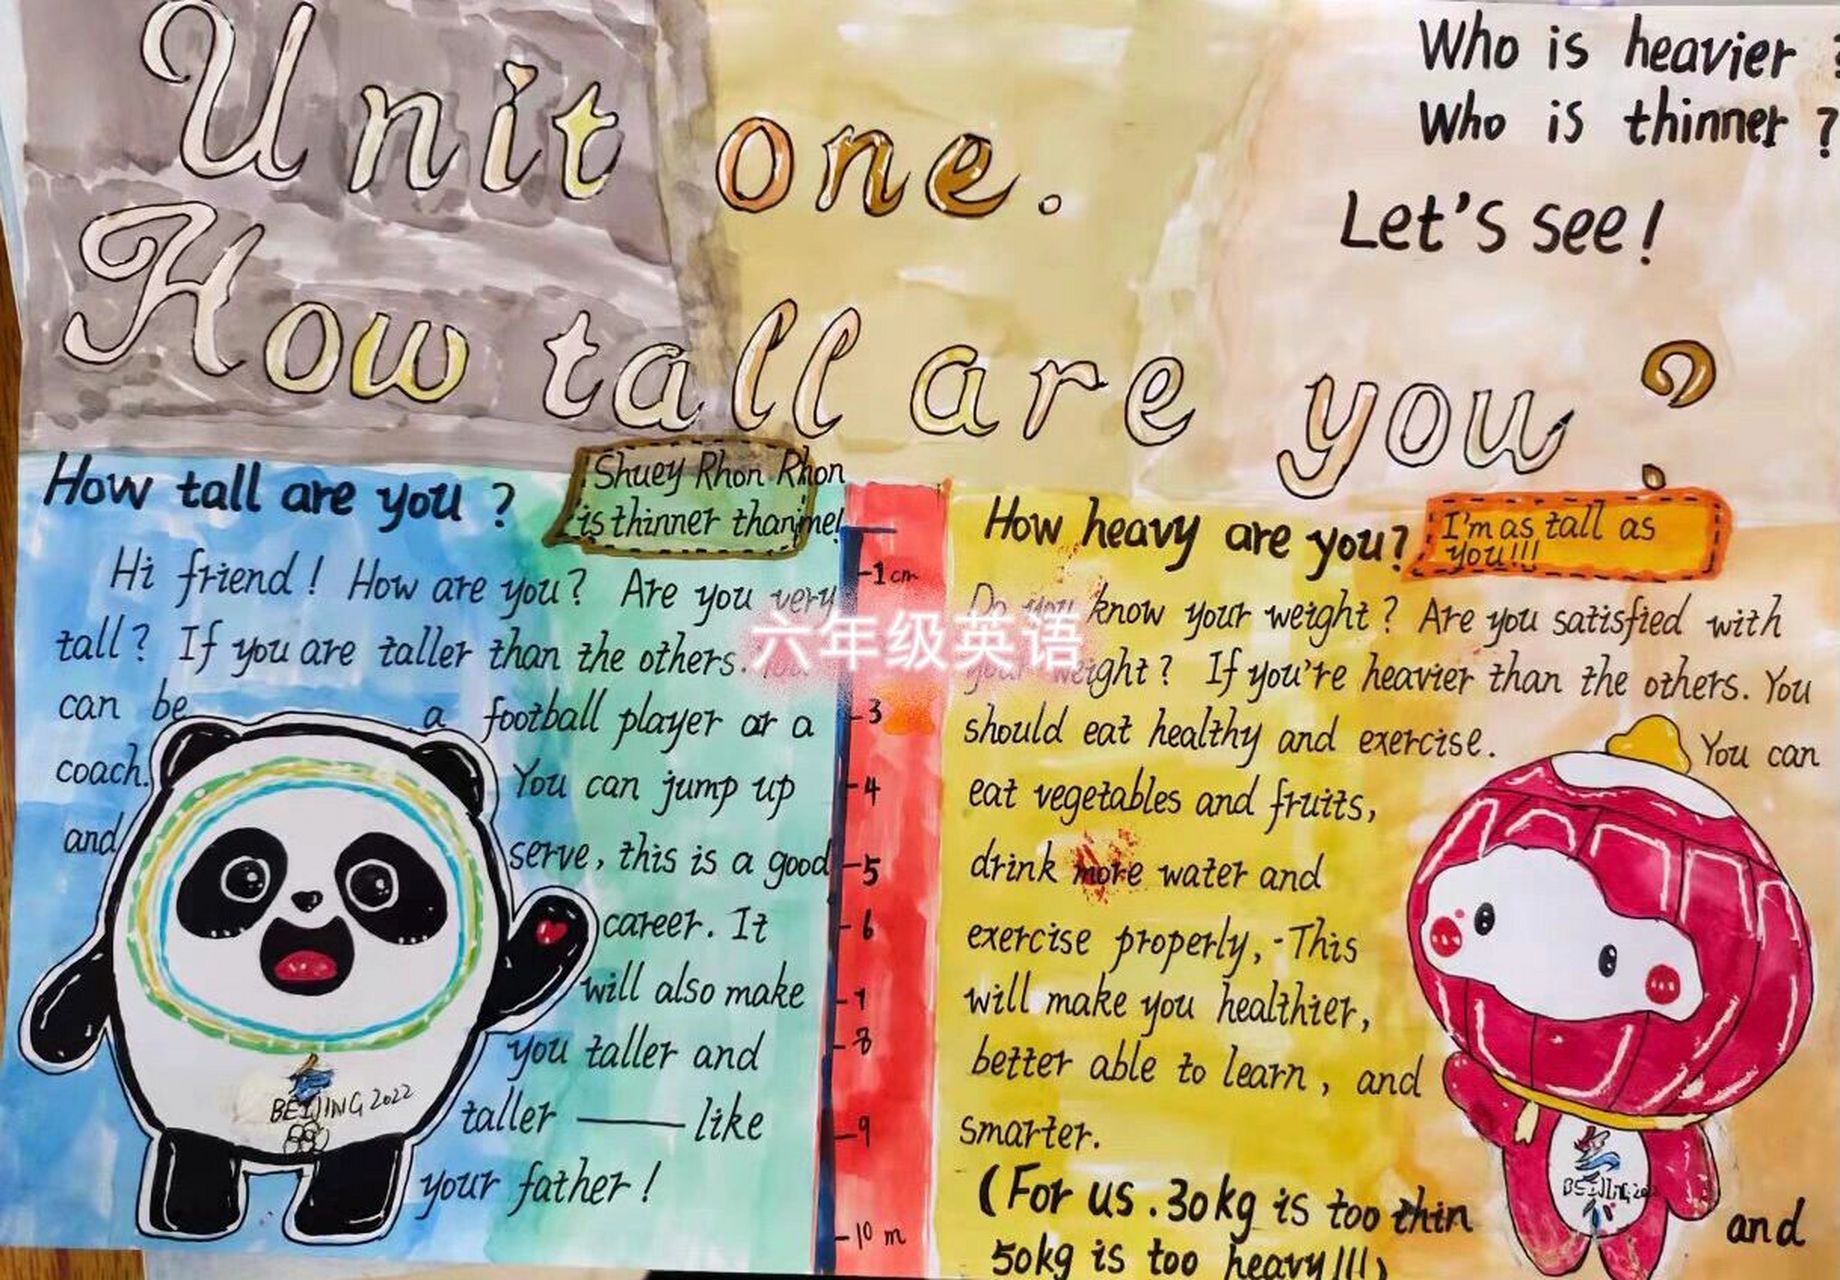 Unit one.
How tall are you?
Who is heavier ?
Who is thinner ?
Let's see!
How tall are you ?
Shuey Rhon Rhon
is thinner than me!
Hi friend! How are you? Are you very
tall? If you are taller than the others.
can be a football player or a
coach. You can jump up
and serve, this is a good
career. It
will also make
you taller and
taller ——— like
your father!
BEIJING 2022
六年级英语
1cm
3
4
5
6
7
8
9
10 m
How heavy are you?
I'm as tall as
you!!!
Do you know your weight? Are you satisfied with
your weight? If you're heavier than the others. You
should eat healthy and exercise. You can
eat vegetables and fruits,
drink more water and
exercise properly, - This
will make you healthier,
better able to learn, and
smarter.
(For us. 30kg is too thin and
50kg is too heavy!!!)